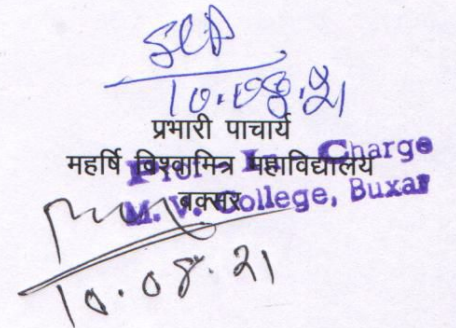 10.08.21
प्रभारी पाचार्य
महर्षि विश्वामित्र महाविद्यालय
In Charge
बक्सर
M. V. College, Buxar
10.08.21